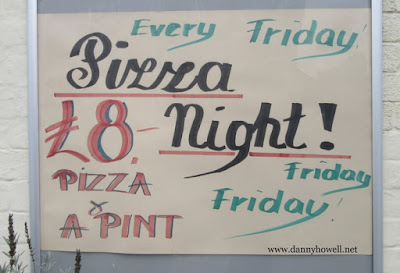 Every Friday!
Pizza
£8,- Night!
PIZZA
&
A PINT
Friday
Friday!
www.dannyhowell.net